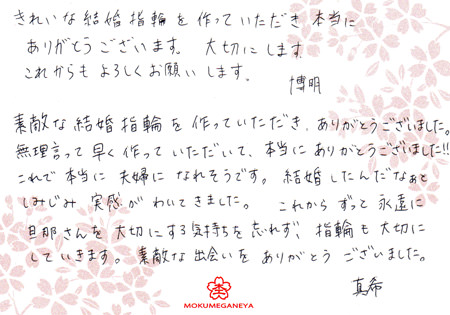 きれいな結婚指輪を作っていただき本当に
ありがとうございます。大切にします。
これからもよろしくお願いします。
博明
素敵な結婚指輪を作っていただき、ありがとうございました。
無理言って早く作っていただいて、本当にありがとうございました!!
これで本当に夫婦になれそうです。結婚したんだなぁと
しみじみ実感がわいてきました。これからずっと永遠に
旦那さんを大切にする気持ちを忘れず、指輪も大切に
していきます。素敵な出会いをありがとうございました。
真希
MOKUMEGANEYA